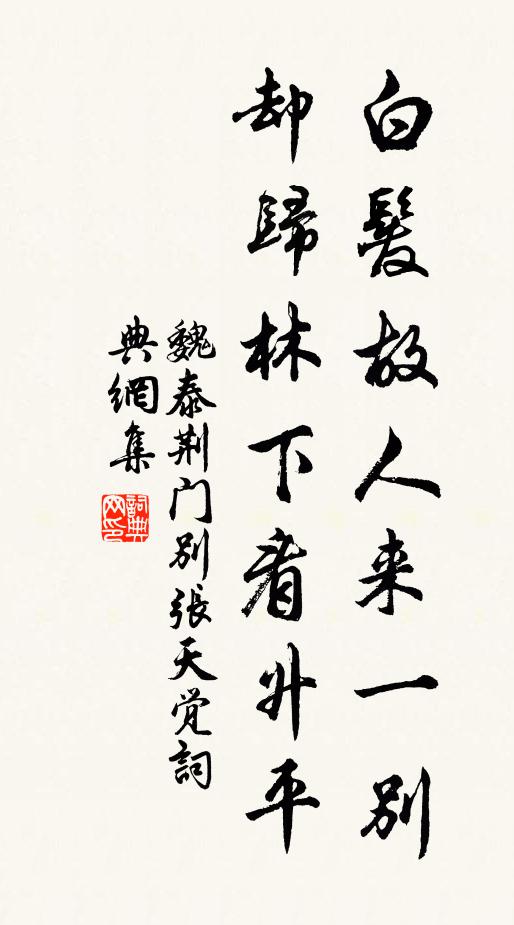 白髮故人来一别
却歸林下看升平
魏泰荆门别張天觉詞
典網集
詞典网印